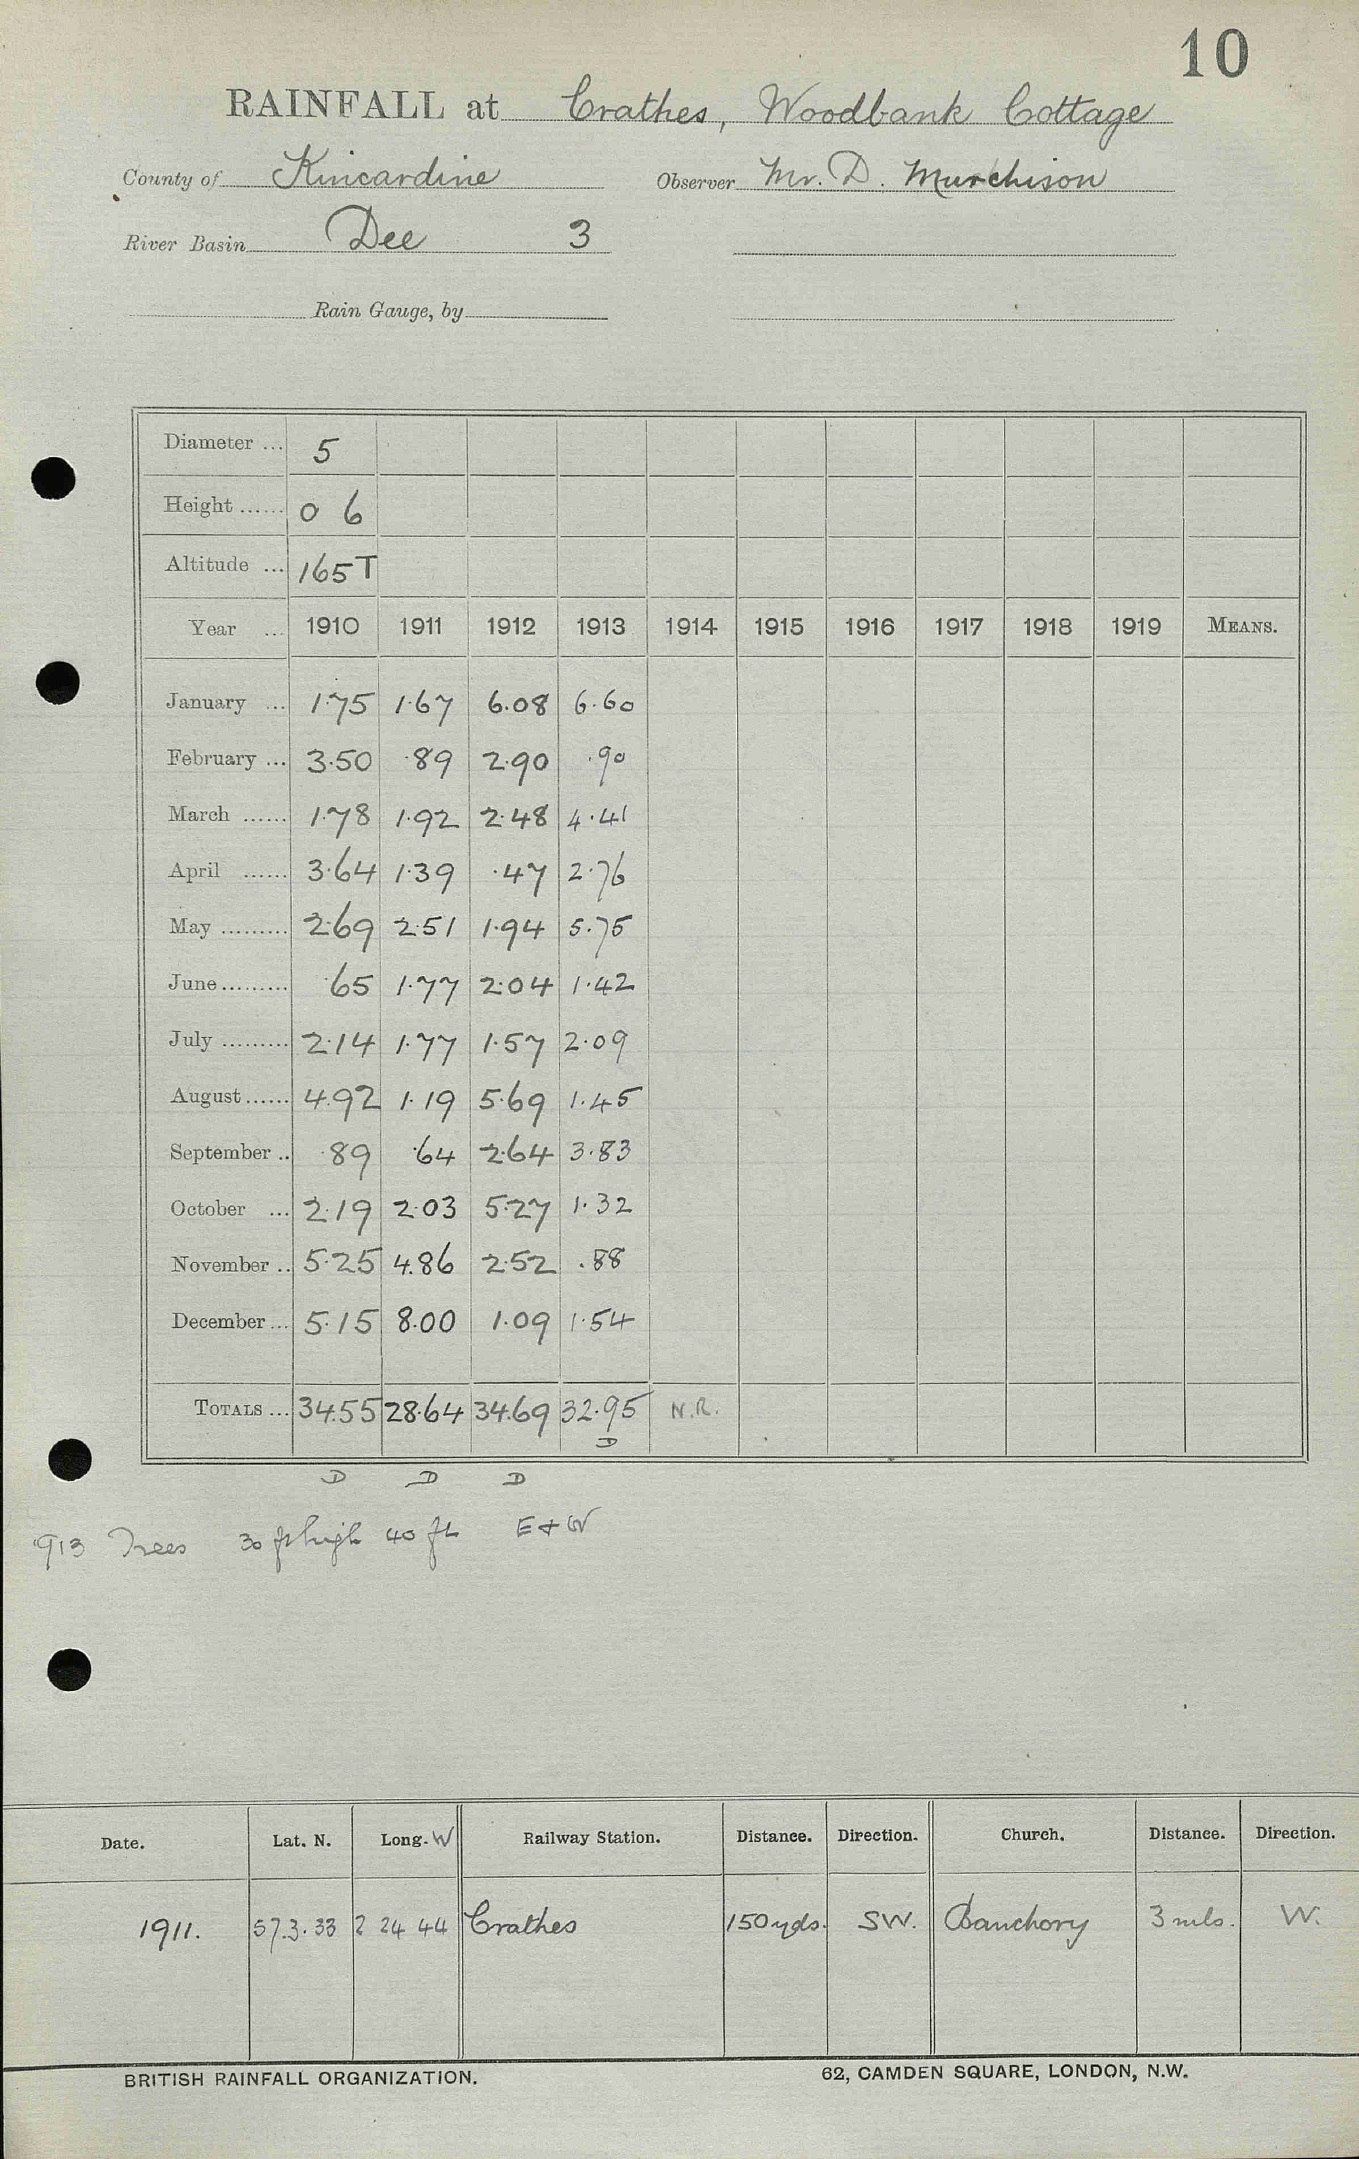 10
RAINFALL at Crathes, Woodbank Cottage
County of Kincardine Observer Mr. D. Murchison
River Basin Dee 3
Rain Gauge, by
Diameter ... 5
Height ...... 0 6
Altitude ... 165T
Year ... 1910 1911 1912 1913 1914 1915 1916 1917 1918 1919 MEANS.
January ... 1.75 1.67 6.08 6.60
February ... 3.50 .89 2.90 .90
March ...... 1.78 1.92 2.48 4.41
April ...... 3.64 1.39 .47 2.76
May ......... 2.69 2.51 1.94 5.75
June ......... .65 1.77 2.04 1.42
July ......... 2.14 1.77 1.57 2.09
August ...... 4.92 1.19 5.69 1.45
September .. .89 .64 2.64 3.83
October ... 2.19 2.03 5.27 1.32
November .. 5.25 4.86 2.52 .88
December ... 5.15 8.00 1.09 1.54
TOTALS ... 34.55 28.64 34.69 32.95 N.R.
D
D D D
1913 Trees 30 ft high 40 ft E & W
Date. Lat. N. Long. W Railway Station. Distance. Direction. Church. Distance. Direction.
1911. 57.3.33 2 24 44 Crathes 150 yds. SW. Banchory 3 mls. W.
BRITISH RAINFALL ORGANIZATION. 62, CAMDEN SQUARE, LONDON, N.W.